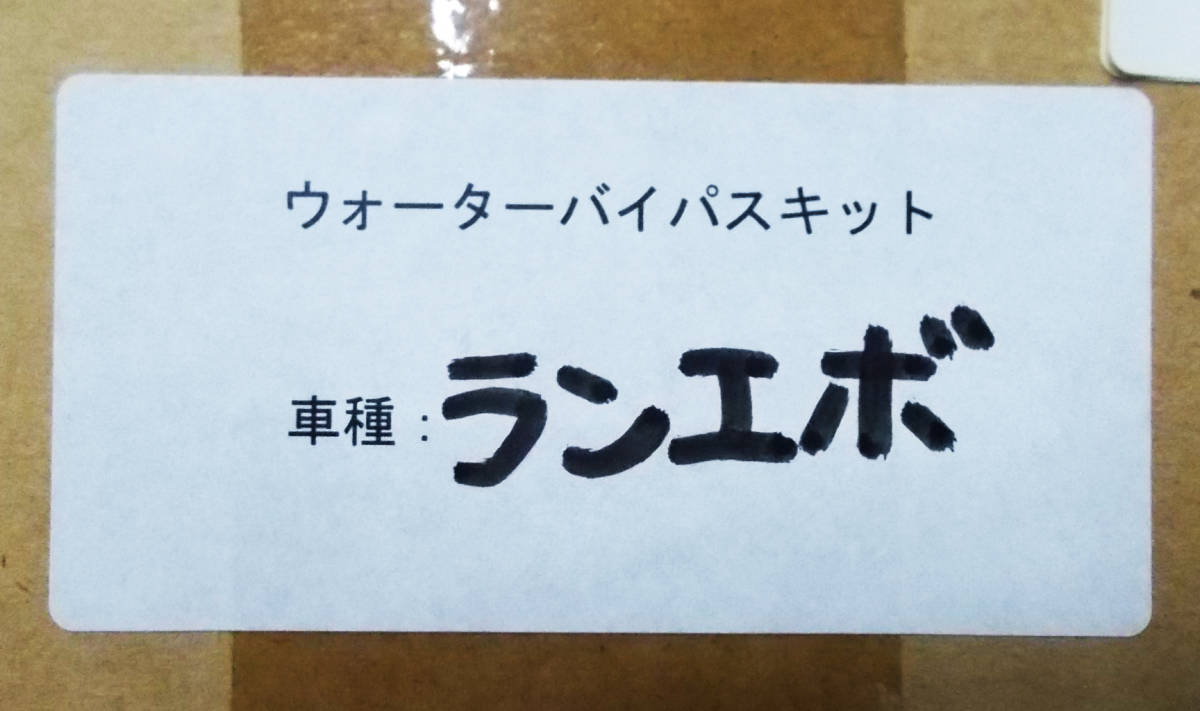 ウォーターバイパスキット
車種：ランエボ